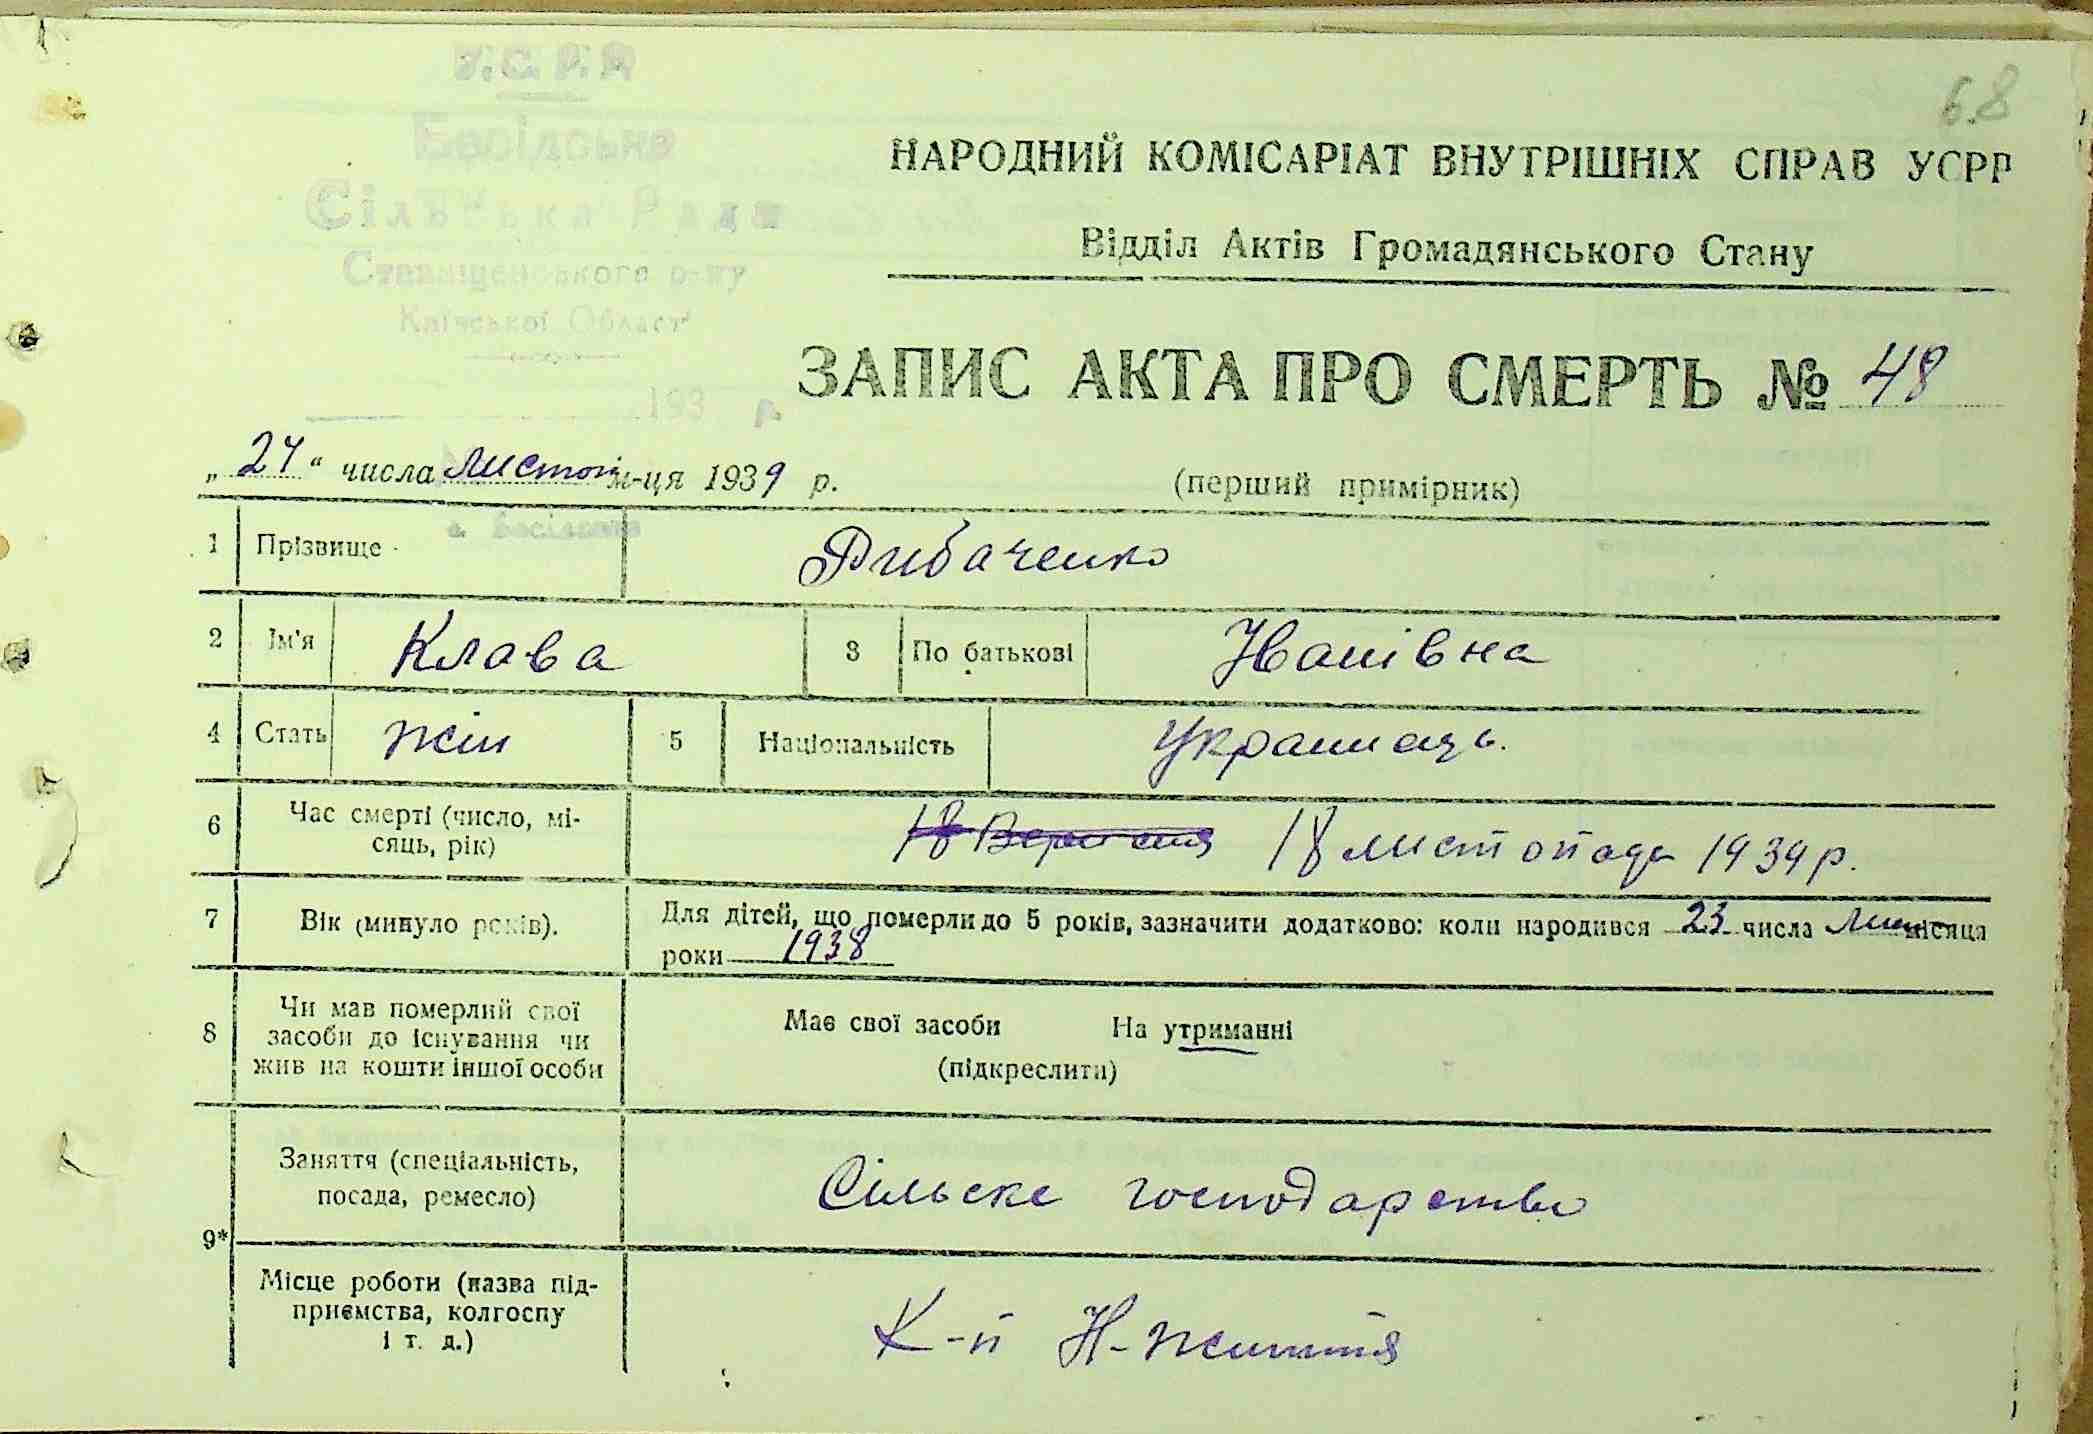 У.С.Р.Р
Сільська Рада
Ставищенського р-ну
Київської Області
193 р.
68
НАРОДНИЙ КОМІСАРІАТ ВНУТРІШНІХ СПРАВ УСРР
Відділ Актів Громадянського Стану
ЗАПИС АКТА ПРО СМЕРТЬ № 48
„ 24 “ числа листоп м-ця 1939 р.
(перший примірник)
1 Прізвище Рибаченко
2 Ім'я Клава 3 По батькові Іванівна
4 Стать жін 5 Національність Українець.
6 Час смерті (число, мі-
сяць, рік) 18 Вересня 18 листопада 1939 р.
7 Вік (минуло років). Для дітей, що померли до 5 років, зазначити додатково: коли народився 23 числа місяця
роки 1938
8 Чи мав померлий свої
засоби до існування чи
жив на кошти іншої особи
Має свої засоби На утриманні
(підкреслити)
9* Заняття (спеціальність,
посада, ремесло) Сільске господарство
Місце роботи (назва під-
приємства, колгоспу
і т. д.)
К-п Н-життя